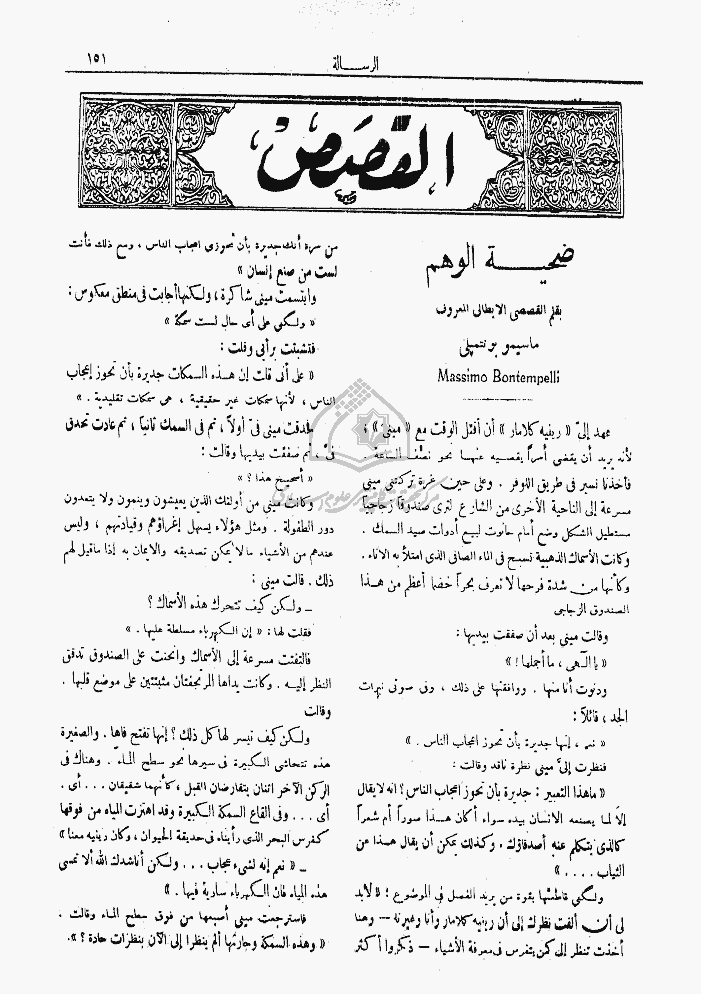 الرسالة
١٥١
القصص
ضحية الوهم
بقلم القصصى الايطالى المعروف
ماسيمو بونتمپلى
Massimo Bontempelli
عهد إلىّ « رينيه كلامار » أن أقتل الوقت مع « مينى » ،
لأنه يريد أن يقضى أمراً يقصيه عنها نحو نصف الساعة .
فأخذنا نسير فى طريق اللوفر . وعلى حين غرة تركتنى مينى
مسرعة إلى الناحية الأخرى من الشارع لترى صندوقاً زجاجياً
مستطيل الشكل وضع أمام حانوت لبيع أدوات صيد السمك .
وكانت الأسماك الذهبية تسبح فى الماء الصافى الذى امتلأ به الاناء .
وكأنها من شدة فرحها لا تعرف بحراً خضما أعظم من هذا
الصندوق الزجاجى
وقالت مينى بعد أن صفقت بيديها :
« يا الٓهى ، ما أجملها ! »
ودنوت أنا منها . ووافقتها على ذلك ، وفى صوتى نبرات
الجد ، قائلاً :
« نعم ، إنها جديرة بأن تحوز اعجاب الناس . »
فنظرت إلىّ مينى نظرة ناقد وقالت :
« ماهذا التعبير : جديرة بأن تحوز اعجاب الناس ؟ انه لايقال
إلا لما يصنعه الانسان بيده سواء أكان هذا صوراً أم شعراً
كالذى يتكلم عنه أصدقاؤك . وكذلك يمكن أن يقال هذا عن
الثياب .... »
ولكنى قاطعتها بقوة من يريد الفصل فى الموضوع ؛ « لابد
لى أن ألفت نظرك إلى أن رينيه كلامار وأنا وغيرنا — وهنا
أخذت تنظر إلى كمن يتفرس فى معرفة الأشياء — ذكروا أكثر
من مرة أنك جديرة بأن تحوزى اعجاب الناس ، ومع ذلك فأنت
لست من صنع إنسان »
وابتسمت مينى شاكرة ، ولكنها أجابت فى منطق معكوس :
« ولكنى على أى حال لست سمكة »
فتشبثت برأيى وقلت :
« على أنى قلت إن هذه السمكات جديرة بأن تحوز إعجاب
الناس ، لأنها سمكات غير حقيقية ، هى سمكات تقليدية . »
فحدقت مينى فىّ أولاً ، ثم فى السمك ثانياً ، ثم عادت تحدق
فىّ ، ثم صفقت بيديها وقالت :
« أصحيح هذا ؟ »
وكانت مينى من أولئك الذين يعيشون وينمون ولا يتعدون
دور الطفولة . ومثل هؤلاء يسهل إغراؤهم وقيادتهم ، وليس
عندهم من الأشياء مالا يمكن تصديقه والايمان به إذا ماقيل لهم
ذلك . قالت مينى :
ـ ولكن كيف تتحرك هذه الأسماك ؟
فقلت لها : « إن الكهرباء مسلطة عليها . »
فالتفتت مسرعة إلى الأسماك وانحنت على الصندوق تدقق
النظر إليه . وكانت يداها المرتجفتان مثبتتين على موضع قلبها .
وقالت
ولكن كيف تيسر لها كل ذلك ؟ إنها تفتح فاها . والصغيرة
هذه تتحاشى الكبيرة فى سيرها نحو سطح الماء . وهناك فى
الركن الآخر اثنان يتقارضان القبل ، كأنهما شقيقان ... أى .
أى ... وفى القاع السمكة الكبيرة وقد اهتزت المياه من فوقها
كفرس البحر الذى رأيناه فى حديقة الحيوان ، وكان رينيه معنا »
ـ « نعم إنه لشىء عجاب ... ولكن أناشدك الله ألا تمسى
هذه المياه فان الكهرباء سارية فيها . »
فاسترجعت مينى أصبعها من فوق سطح الماء وقالت ،
« وهذه السمكة وجارتها ألم ينظرا إلى الآن بنظرات حادة ؟ » .